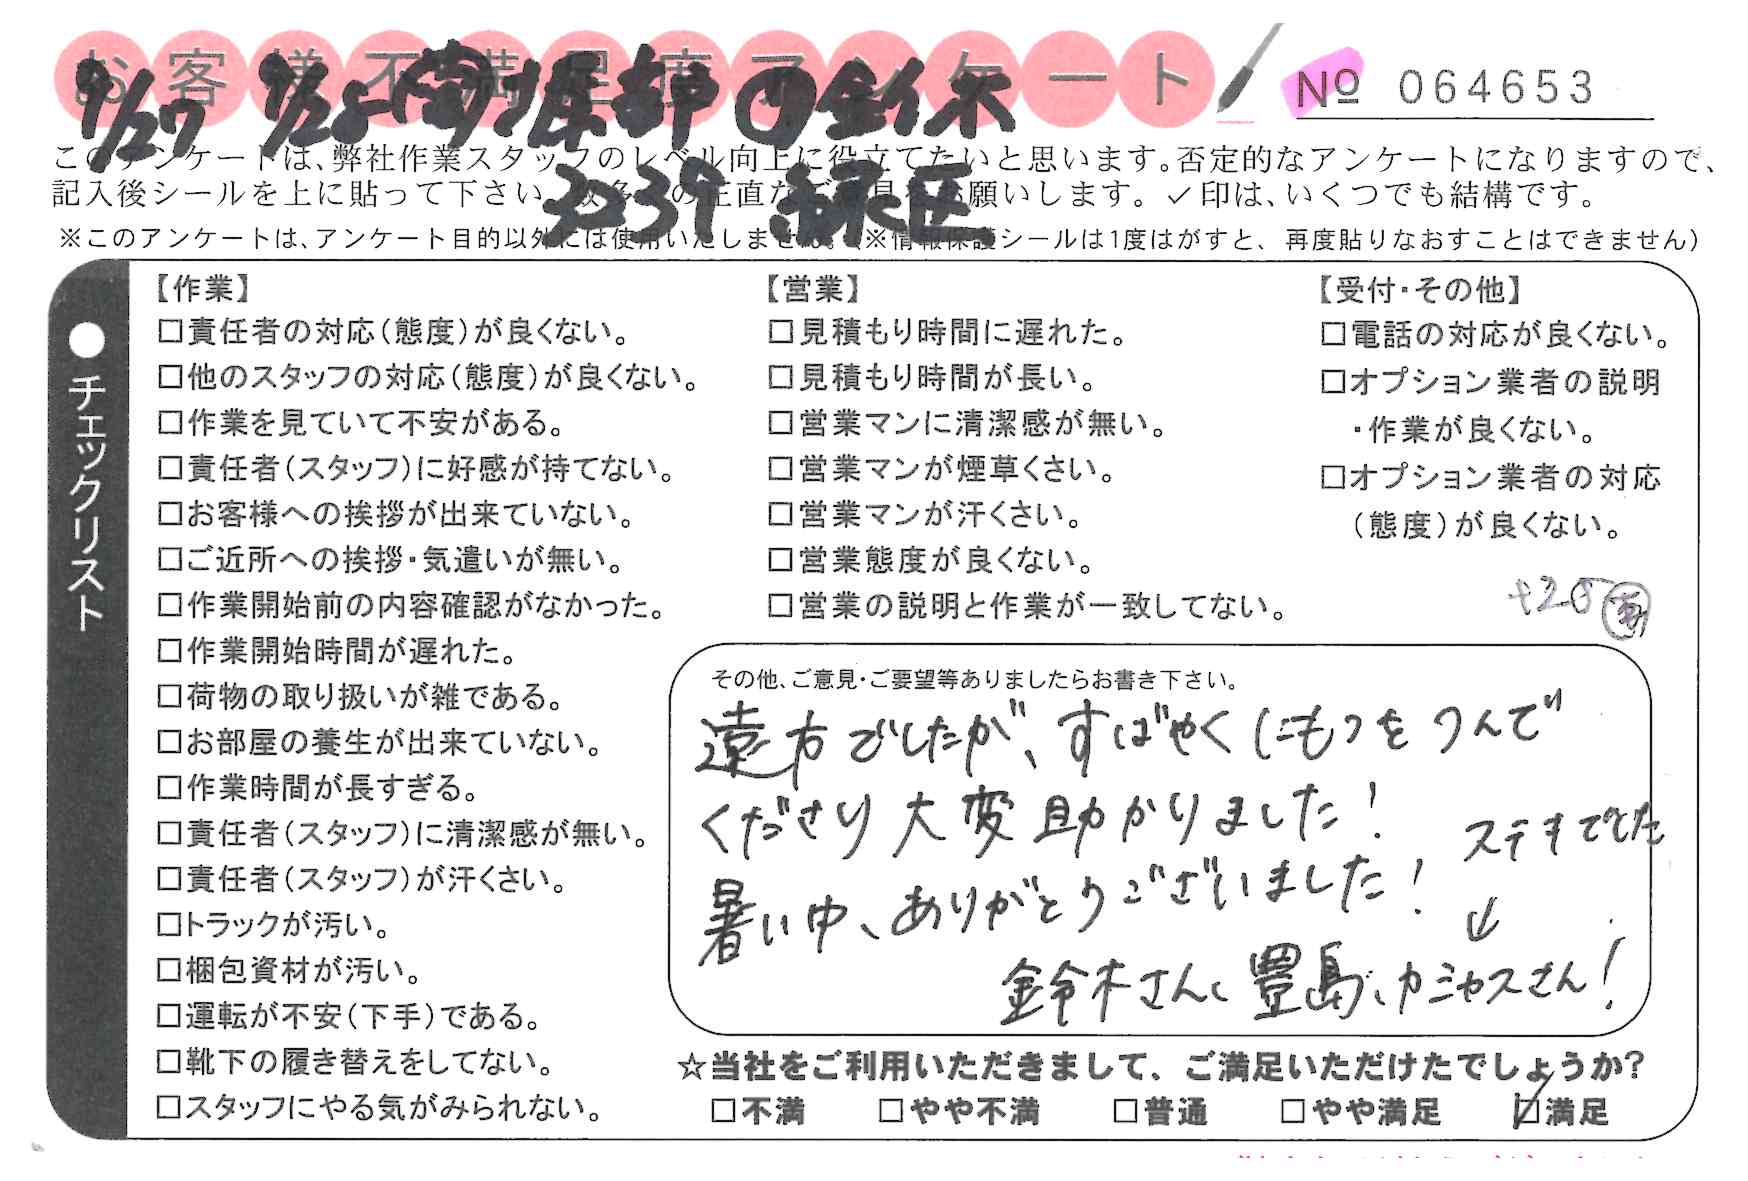 お客様不満足度アンケート
№ 064653
9/27 9/28
3239 緑区
このアンケートは、弊社作業スタッフのレベル向上に役立てたいと思います。否定的なアンケートになりますので、
記入後シールを上に貼って下さい。数多くの正直なご意見をお願いします。✓印は、いくつでも結構です。
※このアンケートは、アンケート目的以外には使用いたしません。(※情報保護シールは1度はがすと、再度貼りなおすことはできません)
●チェックリスト
【作業】
□責任者の対応(態度)が良くない。
□他のスタッフの対応(態度)が良くない。
□作業を見ていて不安がある。
□責任者(スタッフ)に好感が持てない。
□お客様への挨拶が出来ていない。
□ご近所への挨拶・気遣いが無い。
□作業開始前の内容確認がなかった。
□作業開始時間が遅れた。
□荷物の取り扱いが雑である。
□お部屋の養生が出来ていない。
□作業時間が長すぎる。
□責任者(スタッフ)に清潔感が無い。
□責任者(スタッフ)が汗くさい。
□トラックが汚い。
□梱包資材が汚い。
□運転が不安(下手)である。
□靴下の履き替えをしてない。
□スタッフにやる気がみられない。
【営業】
□見積もり時間に遅れた。
□見積もり時間が長い。
□営業マンに清潔感が無い。
□営業マンが煙草くさい。
□営業マンが汗くさい。
□営業態度が良くない。
□営業の説明と作業が一致してない。
【受付・その他】
□電話の対応が良くない。
□オプション業者の説明
・作業が良くない。
□オプション業者の対応
(態度)が良くない。
その他、ご意見・ご要望等ありましたらお書き下さい。
遠方でしたが、すばやくにもつをつんで
くださり大変助かりました!
ステキでした
暑い中、ありがとうございました!
↓
鈴木さん、豊島、カミヤスさん!
☆当社をご利用いただきまして、ご満足いただけたでしょうか?
□不満 □やや不満 □普通 □やや満足 ☑満足